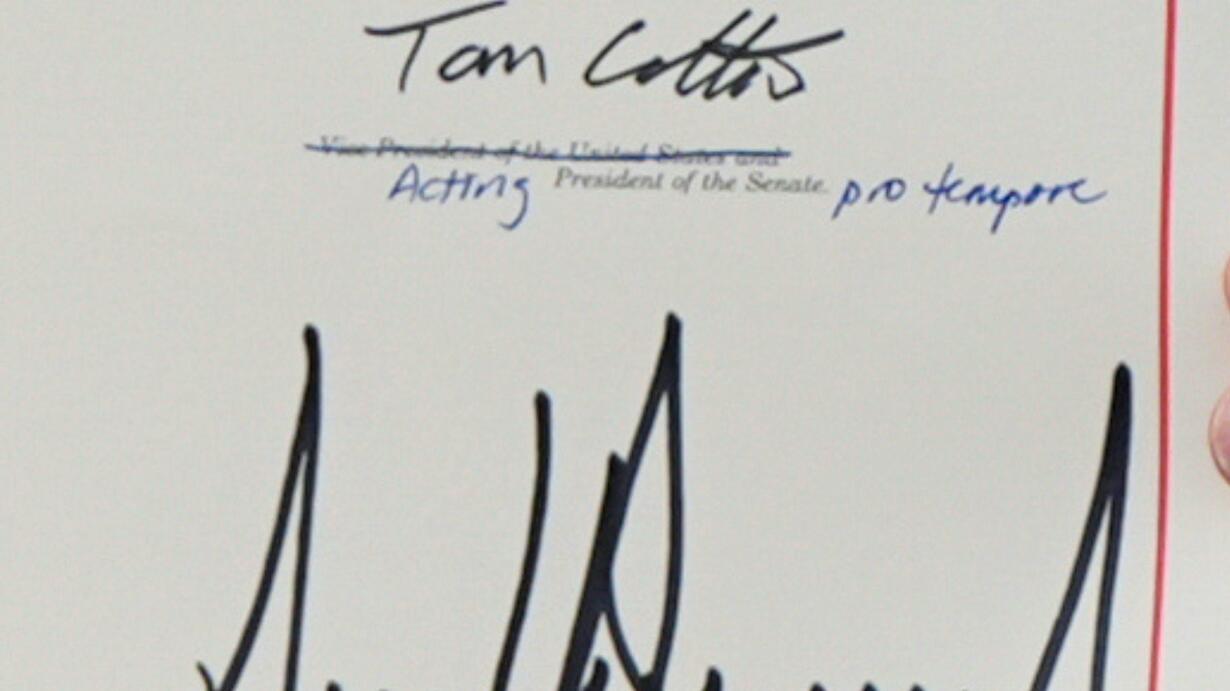 Tom Cotton
Vice President of the United States and
Acting President of the Senate. pro tempore